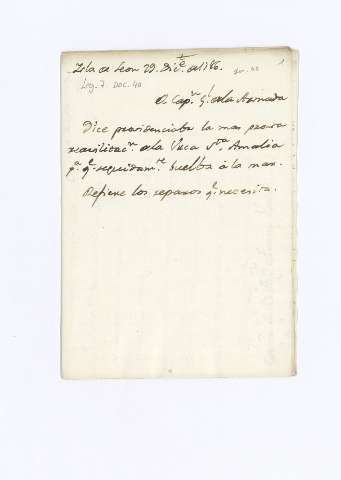 Isla de Leon 29. Dic.e de 1786.
Leg. 7. Doc. 40
1
El Cap.n G.l de la Armada
Dice providencióse la mas pronta
reavilitac.n de la Urca S.ta Amalia
p.a q.e seguidam.te buelba á la mar.
Refiere los reparos q.e necesita.